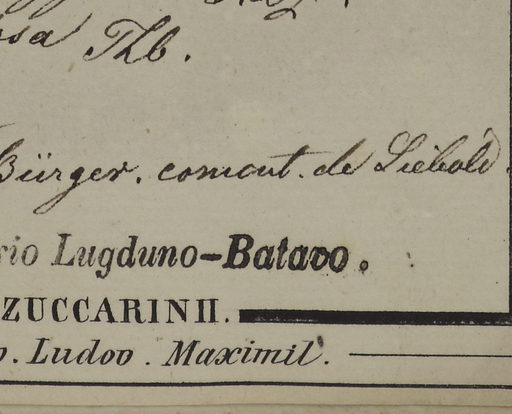 Thb.
Bürger. comont. de Siebold
rio Lugduno-Batavo.
ZUCCARINII.
o. Ludov. Maximil.